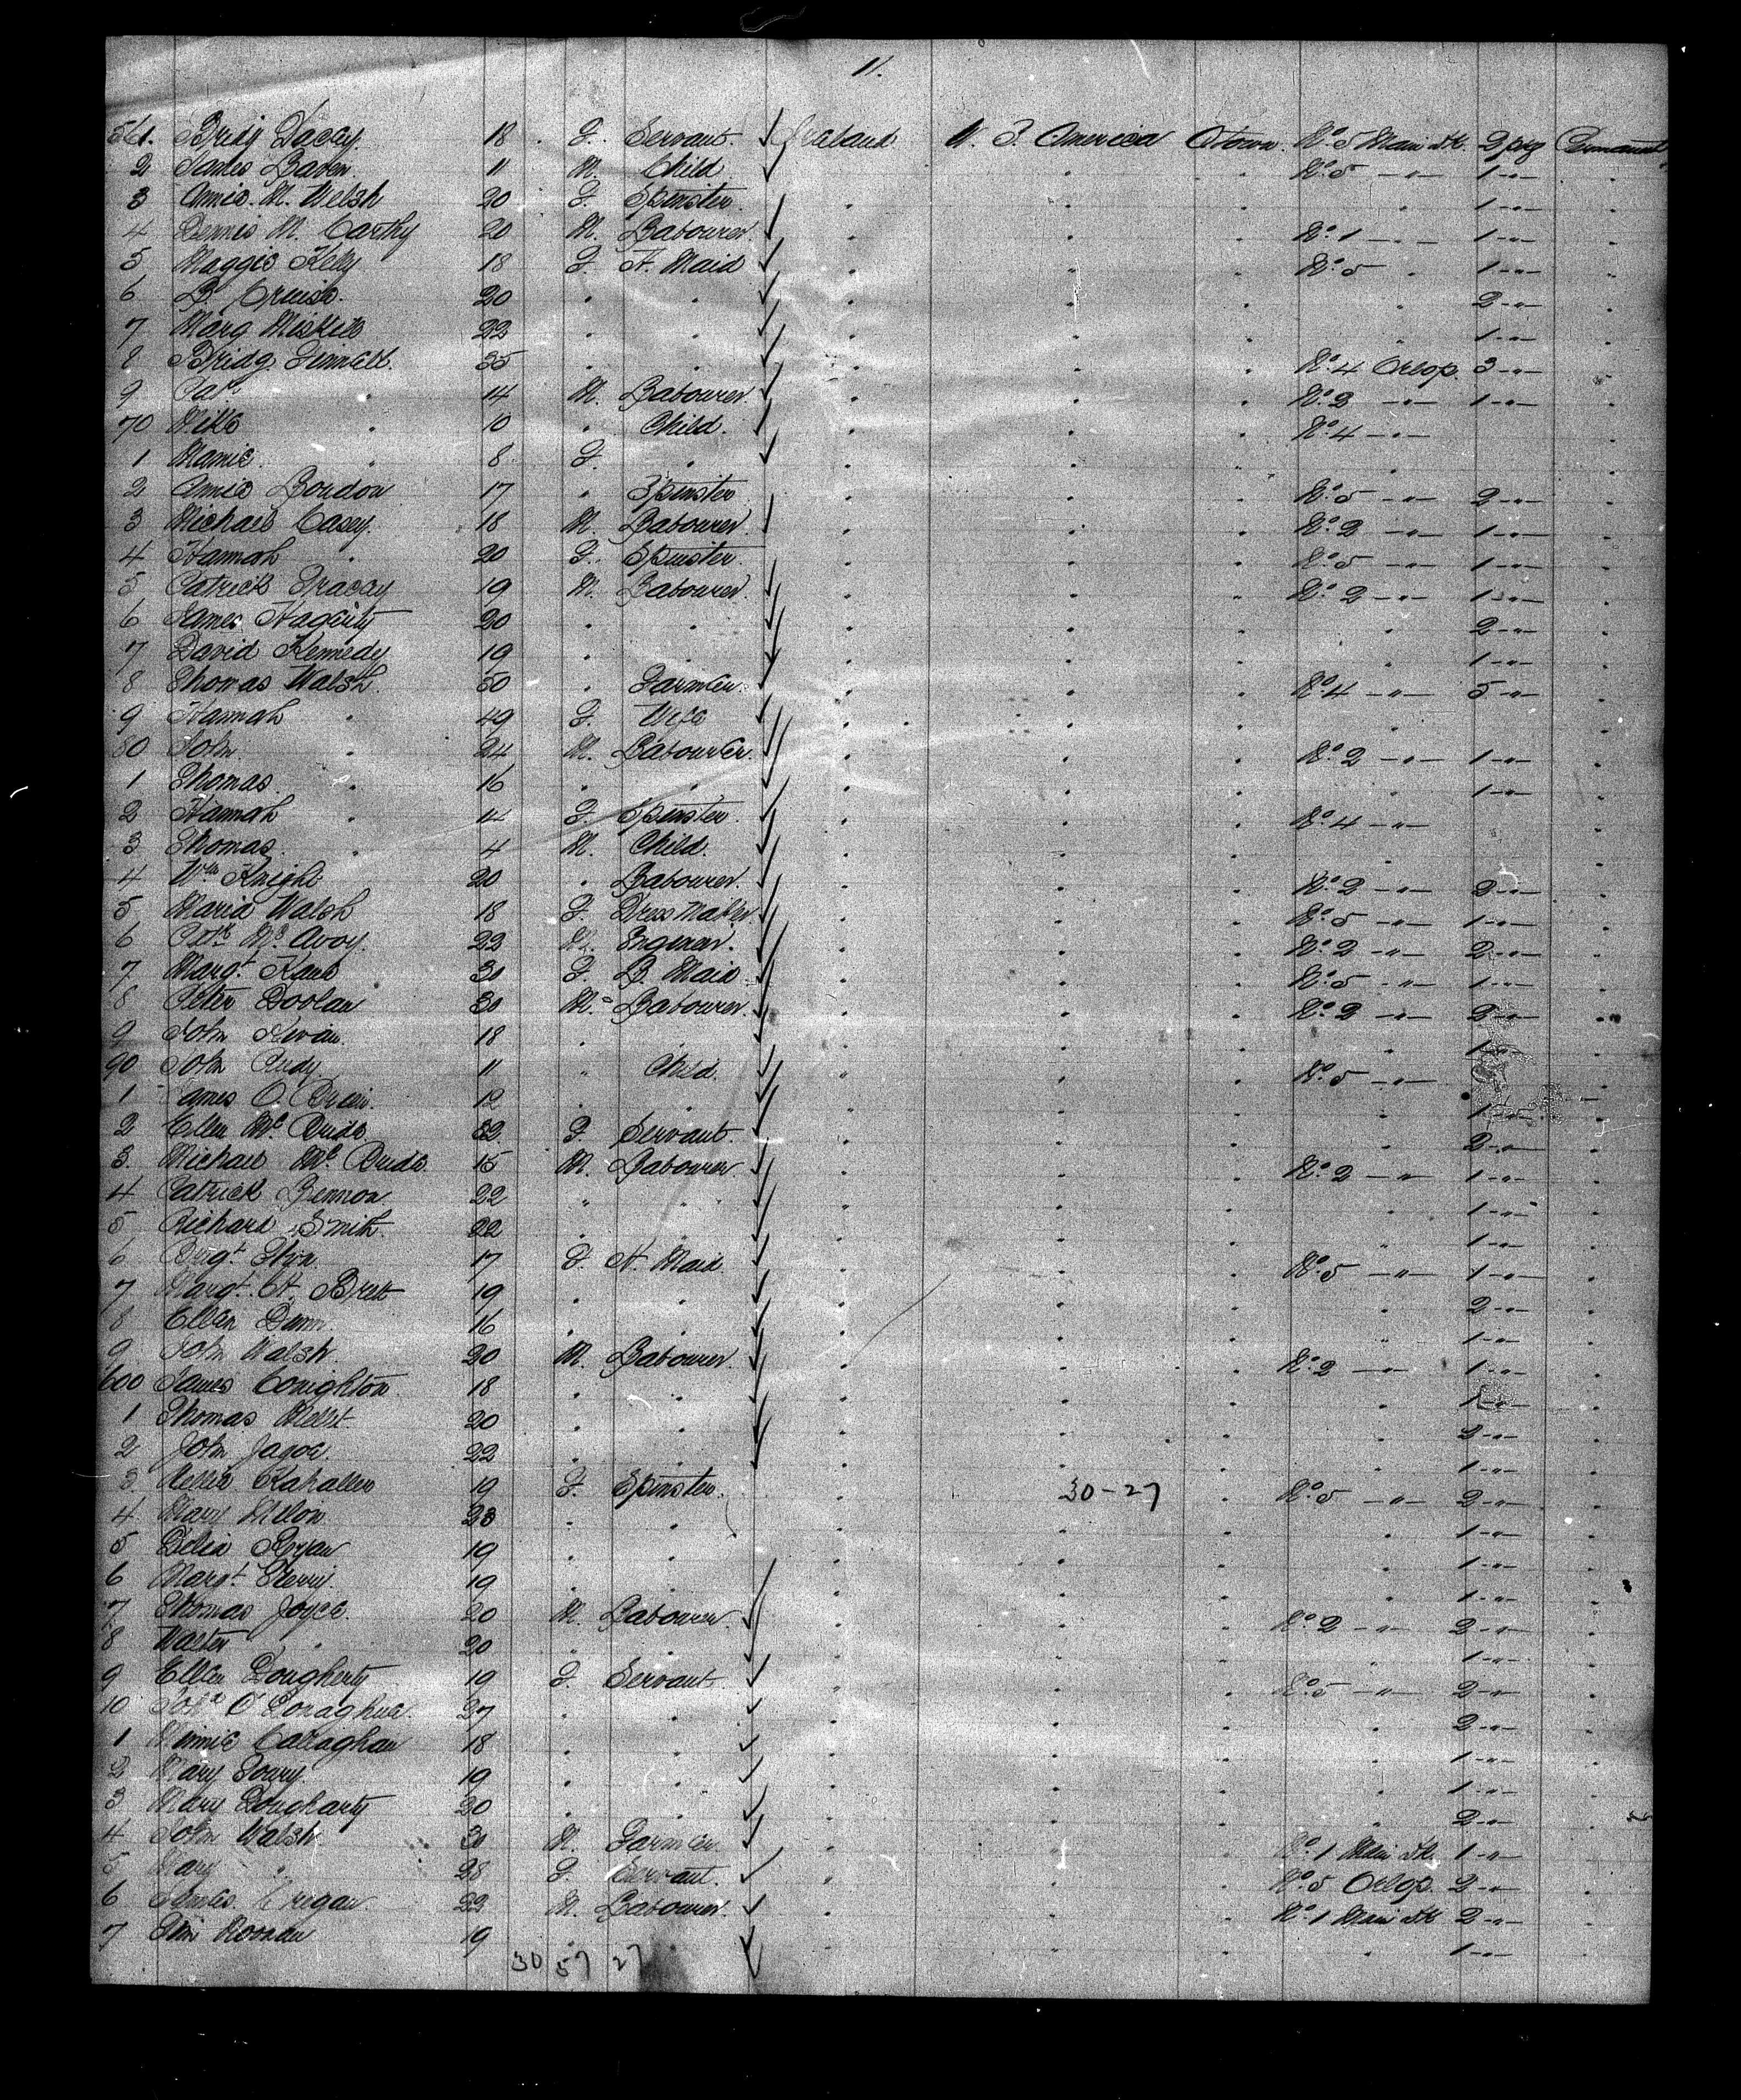 11.
561. Bridg Dacey 18 F. Servant. Ireland U. S. America Qtown. No. 5 Main Dk. 2 pkg
2 James 11 M. Child No. 5 -"- 1 -"-
3 Annie. M. Welsh 20 F. Spinster. " 1 -"-
4 Dennis M. Carthy 20 M. Labourer. No. 1 - - 1 -"-
5 Maggie Kelly 18 F. H. Maid No. 5 " 1 -"-
6 B. Cruise. 20 " " " 2 -"-
7 Marg 22 " " " 1 -"-
8 Bridg. Fennell. 35 " " No. 4 Orlop. 3 -"-
9 Pat " 14 M. Labourer No. 2 -"- 1 -"-
70 Mike " 10 " Child. No. 4 -"-
1 Mamie. " 8 F. " "
2 Annie 17 " Spinster No. 5 -"- 2 -"-
3 Michael Casey. 18 M. Labourer. No. 2 -"- 1 -"-
4 Hannah " 20 F. Spinster. No. 5 -"- 1 -"-
5 Patrick Tracey 19 M. Labourer. No. 2 -"- 1 -"-
6 James Hagerty 20 " " " 2 -"-
7 David Kennedy 19 " " " 1 -"-
8 Thomas Walsh. 50 " Farmer. No. 4 -"- 5 -"-
9 Hannah " 49 F. Wife "
80 John. " 24 M. Labourer. No. 2 -"- 1 -"-
1 Thomas. " 16 " " " 1 -"-
2 Hannah " 14 F. Spinster. No. 4 -"-
3 Thomas. " 4 M. Child. "
4 Wm Knight 20 " Labourer. No. 2 -"- 2 -"-
5 Maria Walsh 18 F. Dress Maker No. 5 -"- 1 -"-
6 Patk. Mc Avoy. 22 M. No. 2 -"- 2 -"-
7 Margt. Kane 30 F. Maid No. 5 -"- 1 -"-
8 Peter Doolan 30 M. Labourer. No. 2 -"- 2 -"-
9 John 18 " " " 1 -"-
90 John 11 " Child. No. 5 -"-
1 James O. Brien. 12 " " " 1 -"-
2 Ellen Mc Bride. 32 F. Servant. " 2 -"-
3. Michael Mc Bride. 15 M. Labourer. No. 2 -"- 1 -"-
4 Patrick Lennon 22 " " " 1 -"-
5 Richard Smith. 22 " " " 1 -"-
6 17 F. H. Maid No. 5 -"- 1 -"-
7 Margt. Brett 19 " " " 2 -"-
8 Ellen Dunn. 16 " " " 1 -"-
9 John Walsh. 20 M. Labourer. No. 2 -"- 1 -"-
600 James Conighton. 18 " " " 1 -"-
1 Thomas 20 " " " 2 -"-
2 John Jagoe. 22 " " " 1 -"-
3 Nellie 19 F. Spinster. 30-27 No. 5 -"- 2 -"-
4 Mary 23 " " " 1 -"-
5 Delia Ryan 19 " " " 1 -"-
6 Margt. 19 " " " 1 -"-
7 Thomas Joyce. 20 M. Labourer. No. 2 -"- 2 -"-
8 Walter " 20 " " " 1 -"-
9 Ellen Dougherty 19 F. Servant No. 5 -"- 2 -"-
10 O'Donaghue. 27 " " " 2 -"-
1 Minnie Callaghan 18 " " " 1 -"-
2 Mary 19 " " " 1 -"-
3 Mary Dougharty 20 " " " 2 -"-
4 John Walsh. 30 M. Farmer. No. 1 Main Dk. 1 -"-
5 Mary " 28 F. Servant. No. 5 Orlop. 2 -"-
6 James Cregan. 22 M. Labourer. No. 1 Main Dk 2 -"-
7 Tim 19 " " " 1 -"-
30 57 27